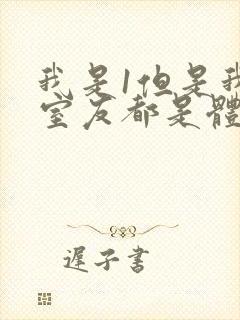 我是1但是我
室友都是體
遲子書